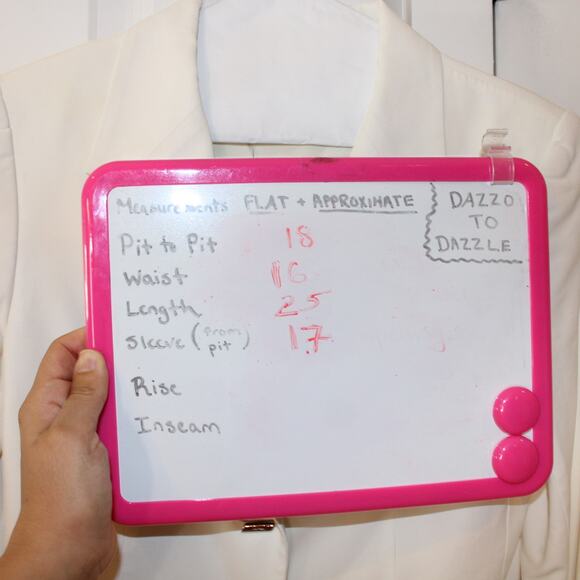 Measurements FLAT + APPROXIMATE
DAZZO
TO
DAZZLE
Pit to Pit 18
Waist 16
Length 25
Sleeve (from pit) 17
Rise
Inseam